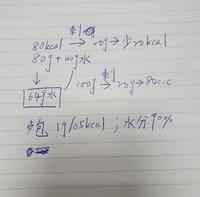 剩
80kcal → 20g → 少20kcal
80g + 40g水
剩
64g水 100g → 20g → 80c.c
1g/0.5kcal ; 水分90%